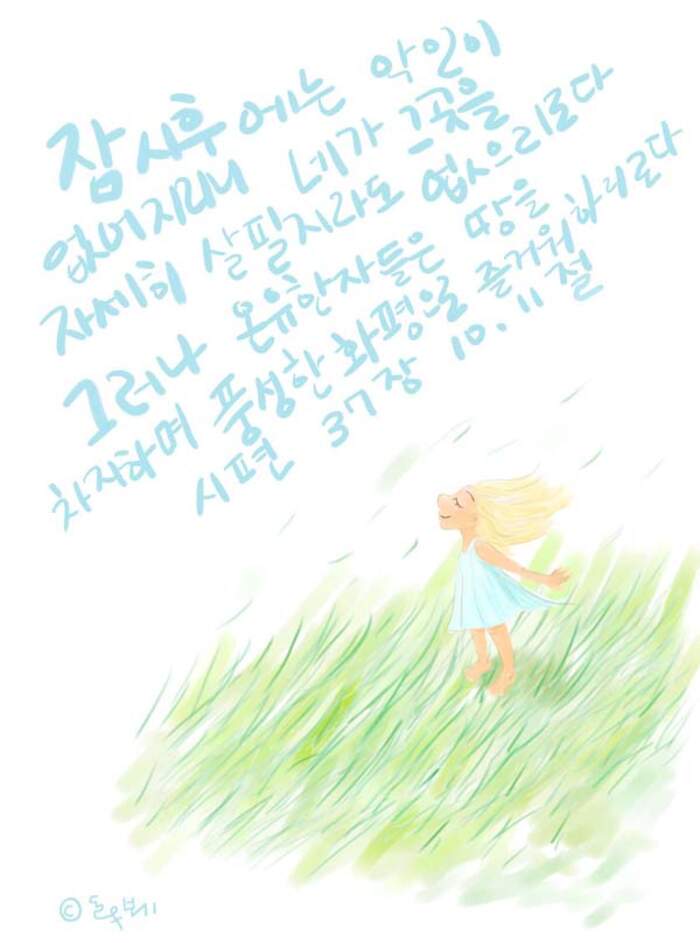 잠시후에는 악인이
없어지리니 네가 그곳을
자세히 살필지라도 없으리로다
그러나 온유한자들은 땅을
차지하며 풍성한 화평으로 즐거워하리로다
시편 37장 10. 11절
©